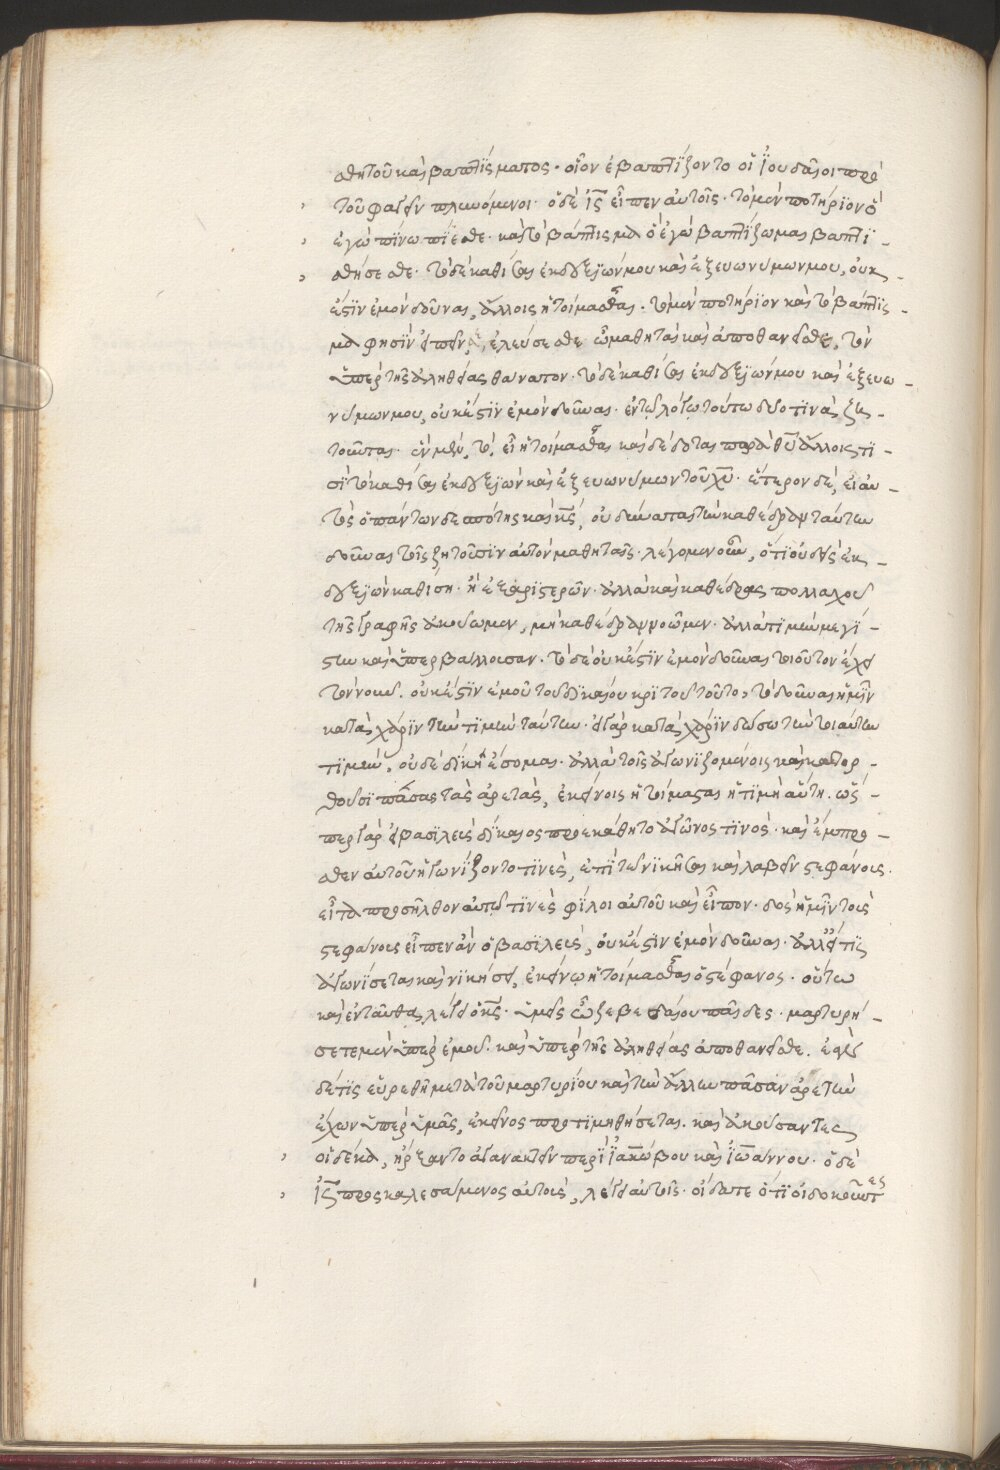 σθητοῦ καὶ βαπτίσματος· οἷον ἐβαπτίζοντο οἱ Ἰουδαῖοι πρὸ
τοῦ φαγεῖν πλυνόμενοι· ὁ δὲ ἰς εἶπεν αὐτοῖς· τὸ μὲν ποτήριον ὃ
ἐγὼ πίνω πίεσθε· καὶ τὸ βάπτισμα ὃ ἐγὼ βαπτίζωμαι βαπτι-
σθήσεσθε· τὸ δὲ καθίσαι ἐκ δεξιῶν μου καὶ ἐξ εὐωνύμων μου, οὐκ
ἔστιν ἐμὸν δοῦναι, ἄλλοις ἡτοίμασθαι· τὸ μὲν ποτήριον καὶ τὸ βάπτισ-
μα φησὶν ἐλεύσεσθε ὦ μαθηταὶ καὶ ἀποθανεῖσθε, τὸν
ὑπὲρ τῆς ἀληθείας θάνατον· τὸ δὲ καθίσαι ἐκ δεξιῶν μου καὶ ἐξ εὐω-
νύμων μου, οὐκ ἔστιν ἐμὸν δοῦναι· ἐν τῷ λόγῳ τούτῳ δύο τινὰ ζη-
τοῦνται· ἓν μὲν, τὸ, εἰ ἡτοίμασθαι καὶ δέδοται παρὰ θῦ ἄλλοις τι-
σὶ τὸ καθίσαι ἐκ δεξιῶν καὶ ἐξ εὐωνύμων τοῦ χῦ· ἕτερον δὲ, εἰ αὐ-
τὸς ὁ πάντων δεσπότης καὶ κς, οὐ δύναται τὴν καθέδραν ταύτην
δοῦναι τοῖς ζητοῦσιν αὐτὸν μαθηταῖς· λέγομεν οὖν, ὅτι οὐδεὶς ἐκ
δεξιῶν καθίση· ἢ ἐξ ἀριστερῶν· ἀλλὰ καὶ καθέδρας πολλαχοῦ
τῆς γραφῆς ἀκούωμεν, μὴ καθέδραν νοῶμεν· ἀλλὰ τιμὴν μεγί-
στην καὶ ὑπερβάλλουσαν· τὸ δὲ οὐκ ἔστιν ἐμὸν δοῦναι τοιοῦτον ἔχει
τὸν νοῦν· οὐκ ἔστιν ἐμοῦ τοῦ δικαίου κριτοῦ τοῦτο, τὸ δοῦναι ἡμῖν
κατὰ χάριν τὴν τιμὴν ταύτην· εἰ γὰρ κατὰ χάριν δώσω τὴν τοιαύτην
τιμὴν, οὐδὲ δίκη ἔσομαι· ἀλλὰ τοῖς ἀγωνιζομένοις καὶ κατορ-
θοῦσι πάσας τὰς ἀρετὰς, ἐκείνοις ἡτοίμασται ἡ τιμὴ αὕτη· ὥσ-
περ γὰρ εἰ βασιλεὺς δίκαιος προεκάθητο ἀγῶνος τινὸς· καὶ ἔμπρο-
σθεν αὐτοῦ ἠγωνίζοντο τινὲς, ἐπὶ τῷ νικῆσαι καὶ λαβεῖν στεφάνους·
εἶτα προσῆλθον αὐτῷ τινὲς φίλοι αὐτοῦ καὶ εἶπον· δὸς ἡμῖν τοὺς
στεφάνους εἶπεν ἂν ὁ βασιλεὺς, οὐκ ἔστιν ἐμὸν δοῦναι· ἀλλ' εἴ τις
ἀγωνίσεται καὶ νικήσει, ἐκείνῳ ἡτοίμασθαι ὁ στέφανος· οὕτω
καὶ ἐνταῦθα λέγει ὁ κς· ὑμεῖς ὦ ζεβεδαίου παῖδες· μαρτυρή-
σετε μὲν ὑπὲρ ἐμοῦ· καὶ ὑπὲρ τῆς ἀληθείας ἀποθανεῖσθε· ἐὰν
δέ τις εὑρεθῇ μετὰ τοῦ μαρτυρίου καὶ τὴν ἄλλην πᾶσαν ἀρετὴν
ἔχων ὑπὲρ ὑμᾶς, ἐκεῖνος προτιμηθήσεται· καὶ ἀκούσαντες
οἱ δέκα, ἤρξαντο ἀγανακτεῖν περὶ Ἰακώβου καὶ Ἰωάννου· ὁ δὲ
ἰς προσκαλεσάμενος αὐτοὺς, λέγει αὐτοῖς· οἴδατε ὅτι οἱ δοκοῦντες